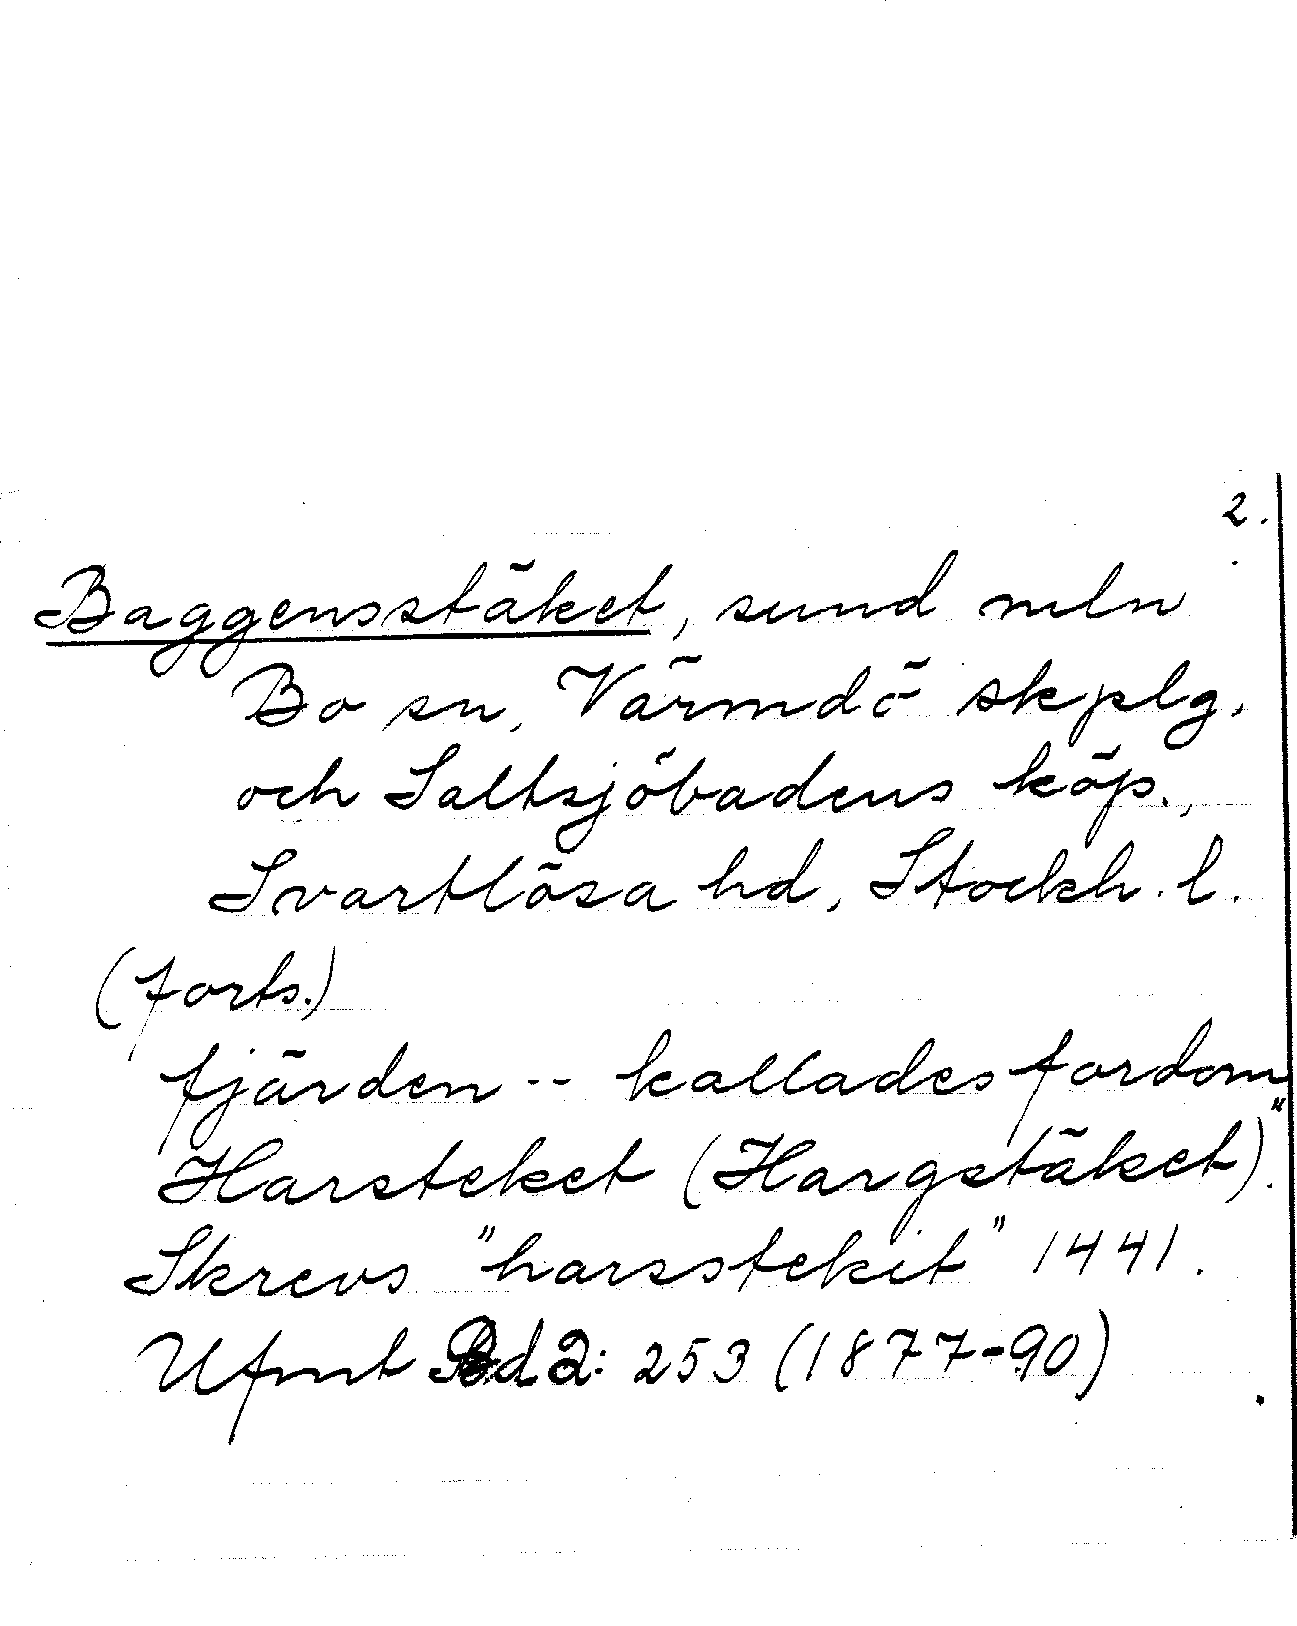 2.
Baggensstäket, sund mln
Bo sn, Värmdö skplg.
och Saltsjöbadens köp.,
Svartlösa hd, Stockh. l.
(Forts.)
fjärden -- kallades fordom
Harsteket (Hargstäket)."
Skrevs "harsstekit" 1441.
Ufmt Bd 2: 253 (1877-90)